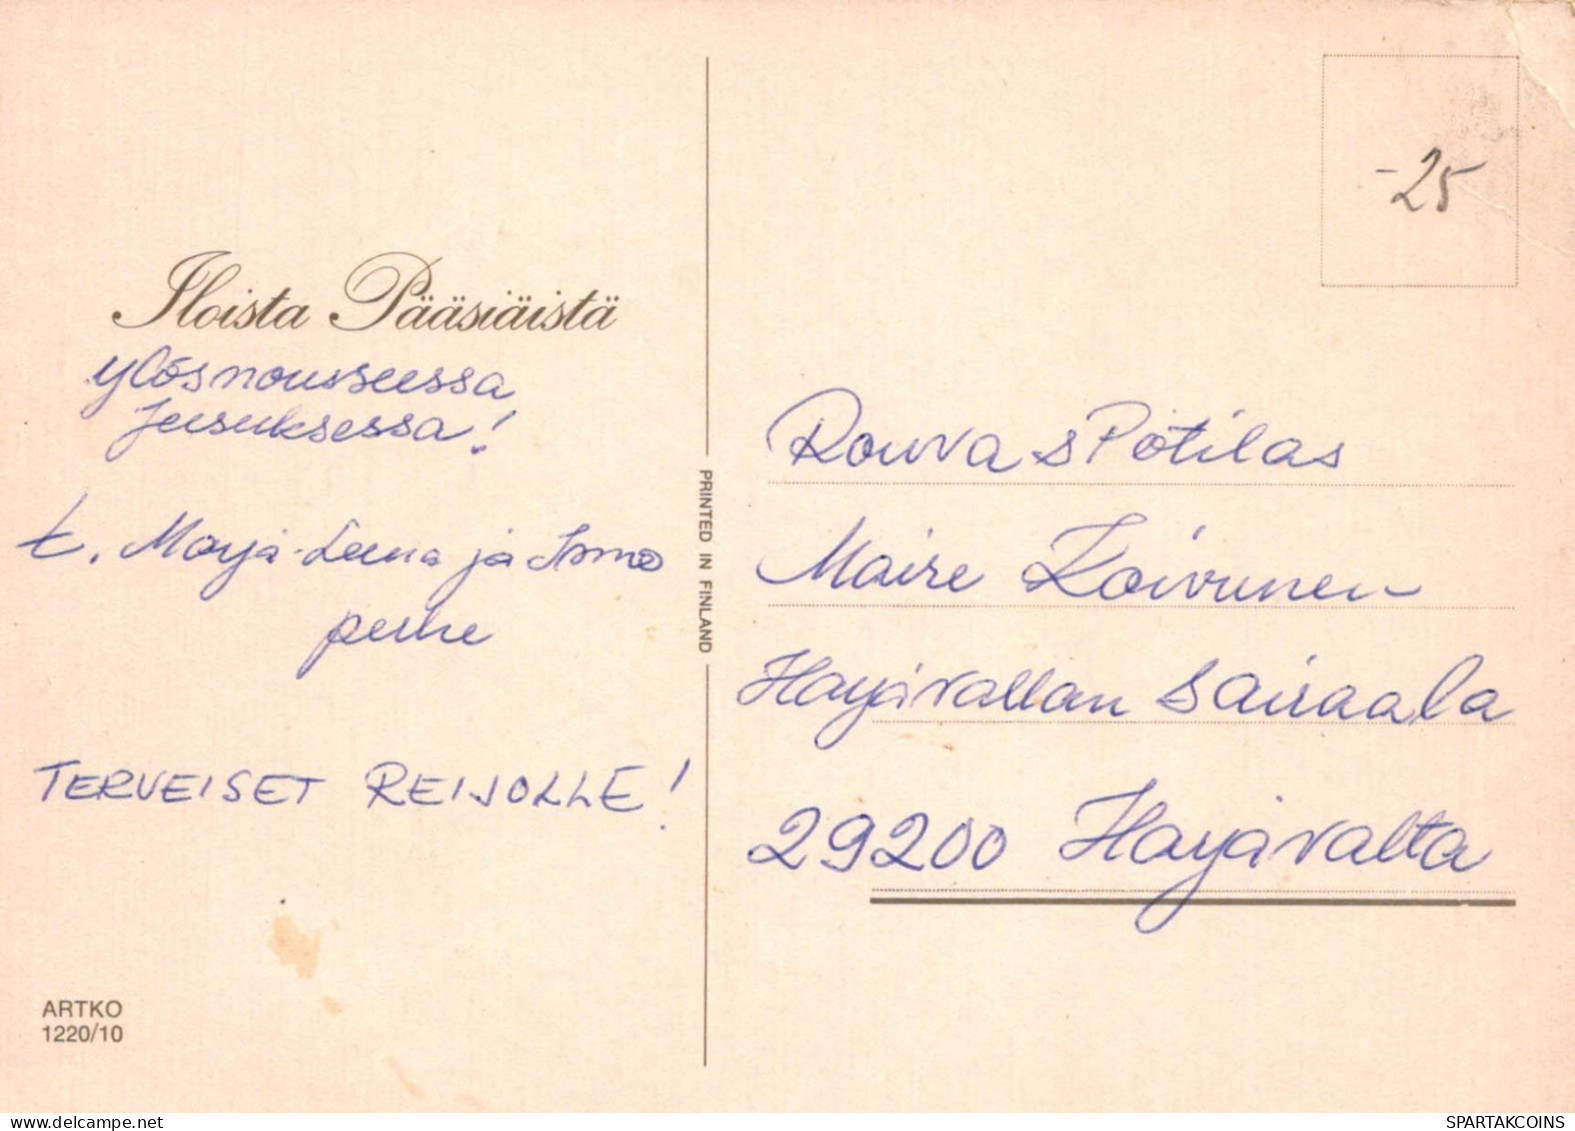 Iloista Pääsiäistä
ylösnousseessa
Jeesuksessa!
t. Marja-Leena ja Ismo
perhe
TERVEISET REIJOLLE!
ARTKO
1220/10
PRINTED IN FINLAND
-25
Rouva Potilas
Maire Koivunen
Harjavallan sairaala
29200 Harjavalta
www.delcampe.net
SPARTAKCOINS